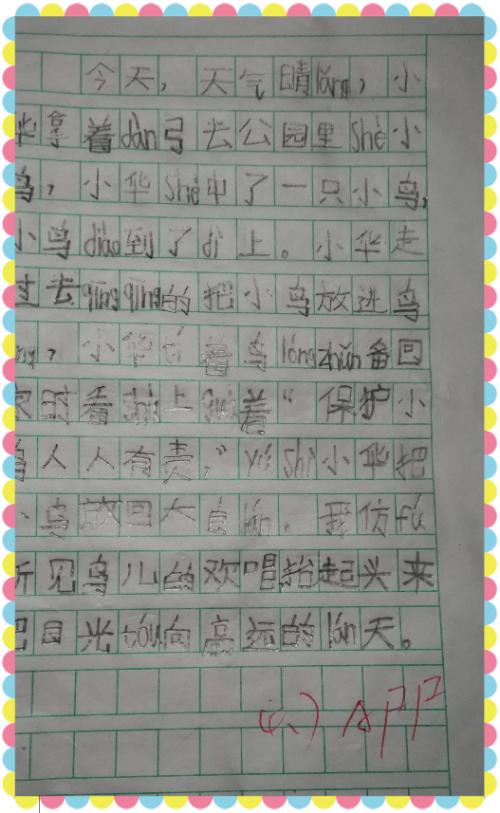 今天，天气晴lǎng，小
华拿着dàn弓去公园里shè小
鸟，小华shè中了一只小鸟，
小鸟diào到了dì上。小华走
过去qīngqīng的把小鸟放进鸟
，小华tí着鸟lóngzhǔn备回
家时看 上 着“保护小
鸟人人有责，”yú shì小华把
小鸟放回大自rán．我仿fú
听见鸟儿的欢唱抬起头来
把目光tóu向高远的lán天。
(八) APP